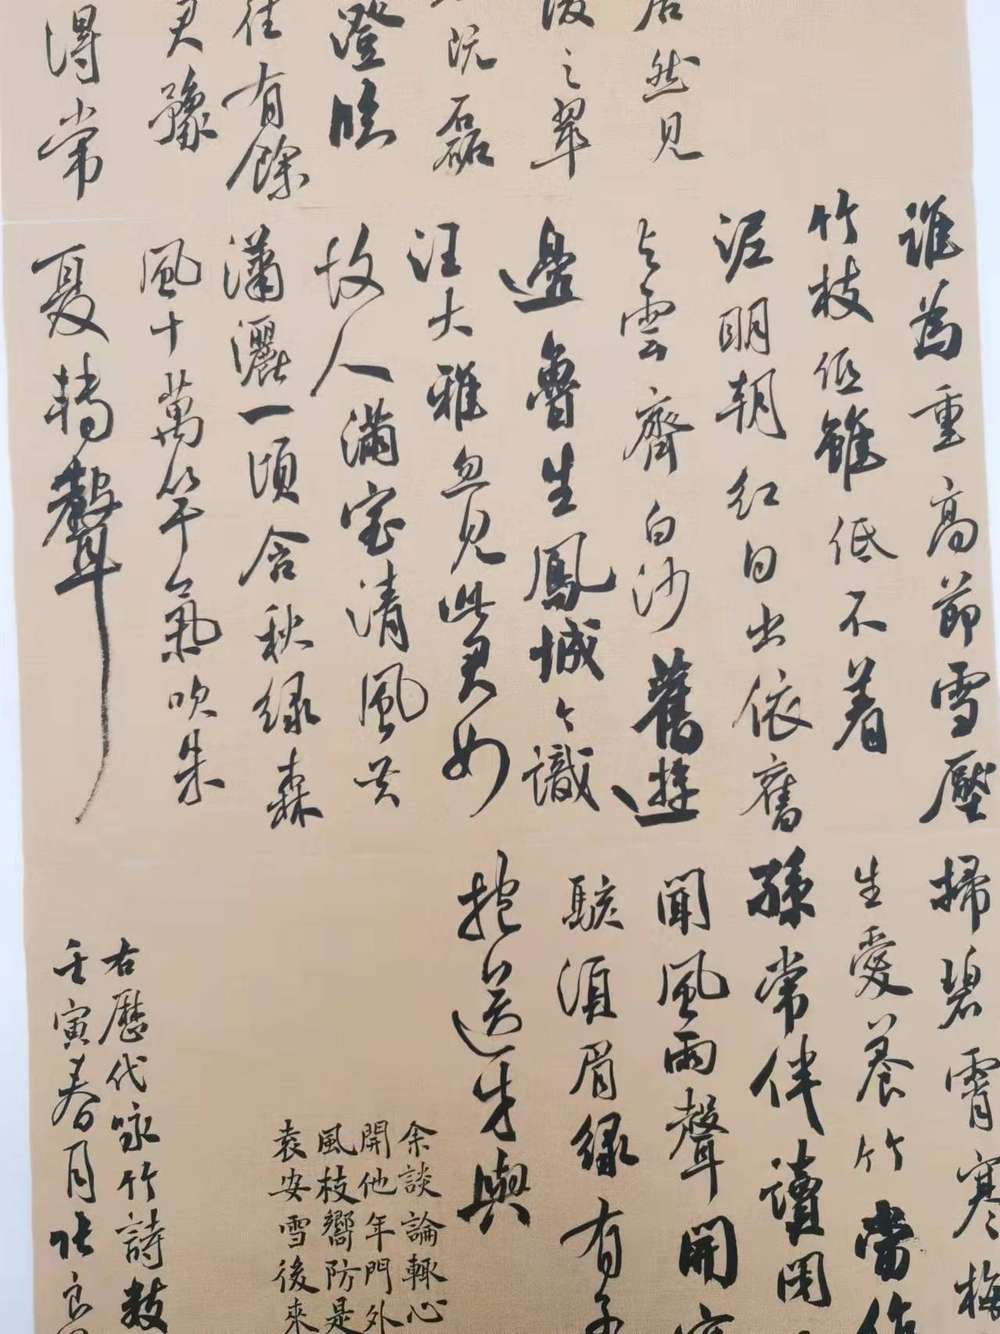 居然見
之翠
既磊
澄臨
往有餘
君豫
得常
誰為重高節雪壓
竹枝低雖低不着
泥明朝紅日出依舊
与雲齊白沙舊遊
邊魯生鳳城々識
汪大雅忽見此君如
故人滿室清風共
瀟灑一頃含秋綠森
風十萬竿氣吹朱
夏轉聲
掃碧霄寒梅
生愛養竹當作
孫常伴讀閑
聞風雨聲開
駭須眉綠有子
抱送與
余談論輒心
開他年門外
風枝嚮防是
袁安雪後來
右歷代咏竹詩數
壬寅春月張良